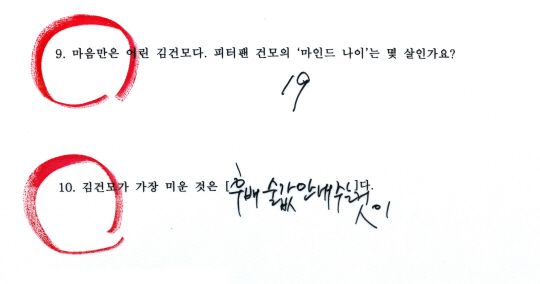 9. 마음만은 어린 김건모다. 피터팬 건모의 '마인드 나이'는 몇 살인가요?
19
10. 김건모가 가장 미운 것은 [후배 술값 안내주는]다.
것이